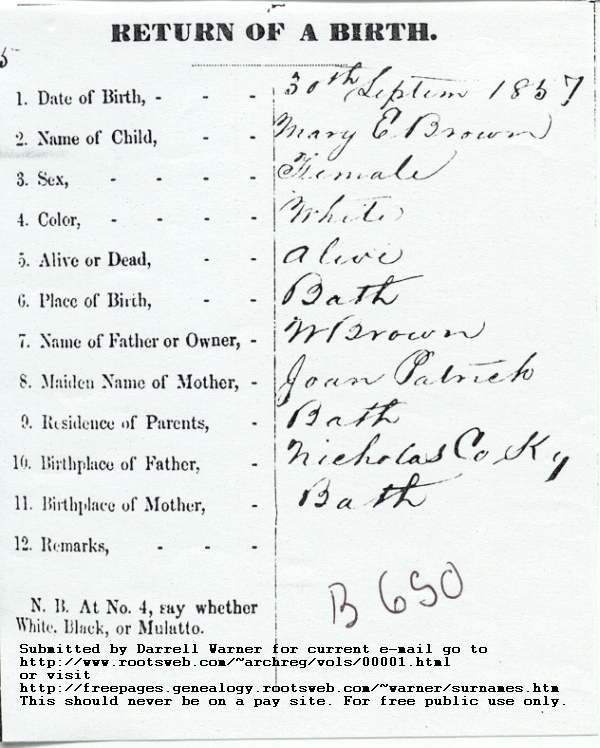 RETURN OF A BIRTH.
5
1. Date of Birth, - - - 30th Septem 1857
2. Name of Child, - - Mary E Brown
3. Sex, - - - - Female
4. Color, - - - - White
5. Alive or Dead, - - Alive
6. Place of Birth, - - Bath
7. Name of Father or Owner, - W Brown
8. Maiden Name of Mother, - Joan Patrick
9. Residence of Parents, - Bath
10. Birthplace of Father, - Nicholas Co Ky
11. Birthplace of Mother, - Bath
12. Remarks, - - -
B 690
N. B. At No. 4, say whether
White, Black, or Mulatto.
Submitted by Darrell Warner for current e-mail go to
http://www.rootsweb.com/~archreg/vols/00001.html
or visit
http://freepages.genealogy.rootsweb.com/~warner/surnames.htm
This should never be on a pay site. For free public use only.